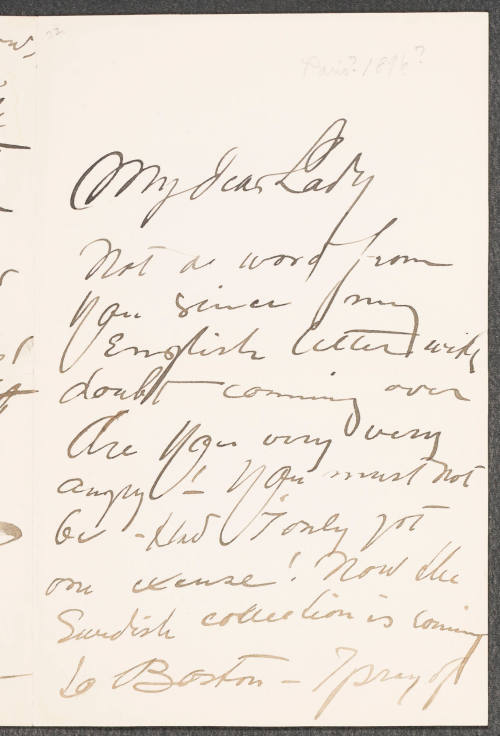 Paris? 1896?
My dear Lady
Not a word from
you since my
English letter with
doubt coming over
Are you very very
angry! You must not
be - Had I only got
one excuse! Now the
Swedish collection is coming
to Boston - I pray of